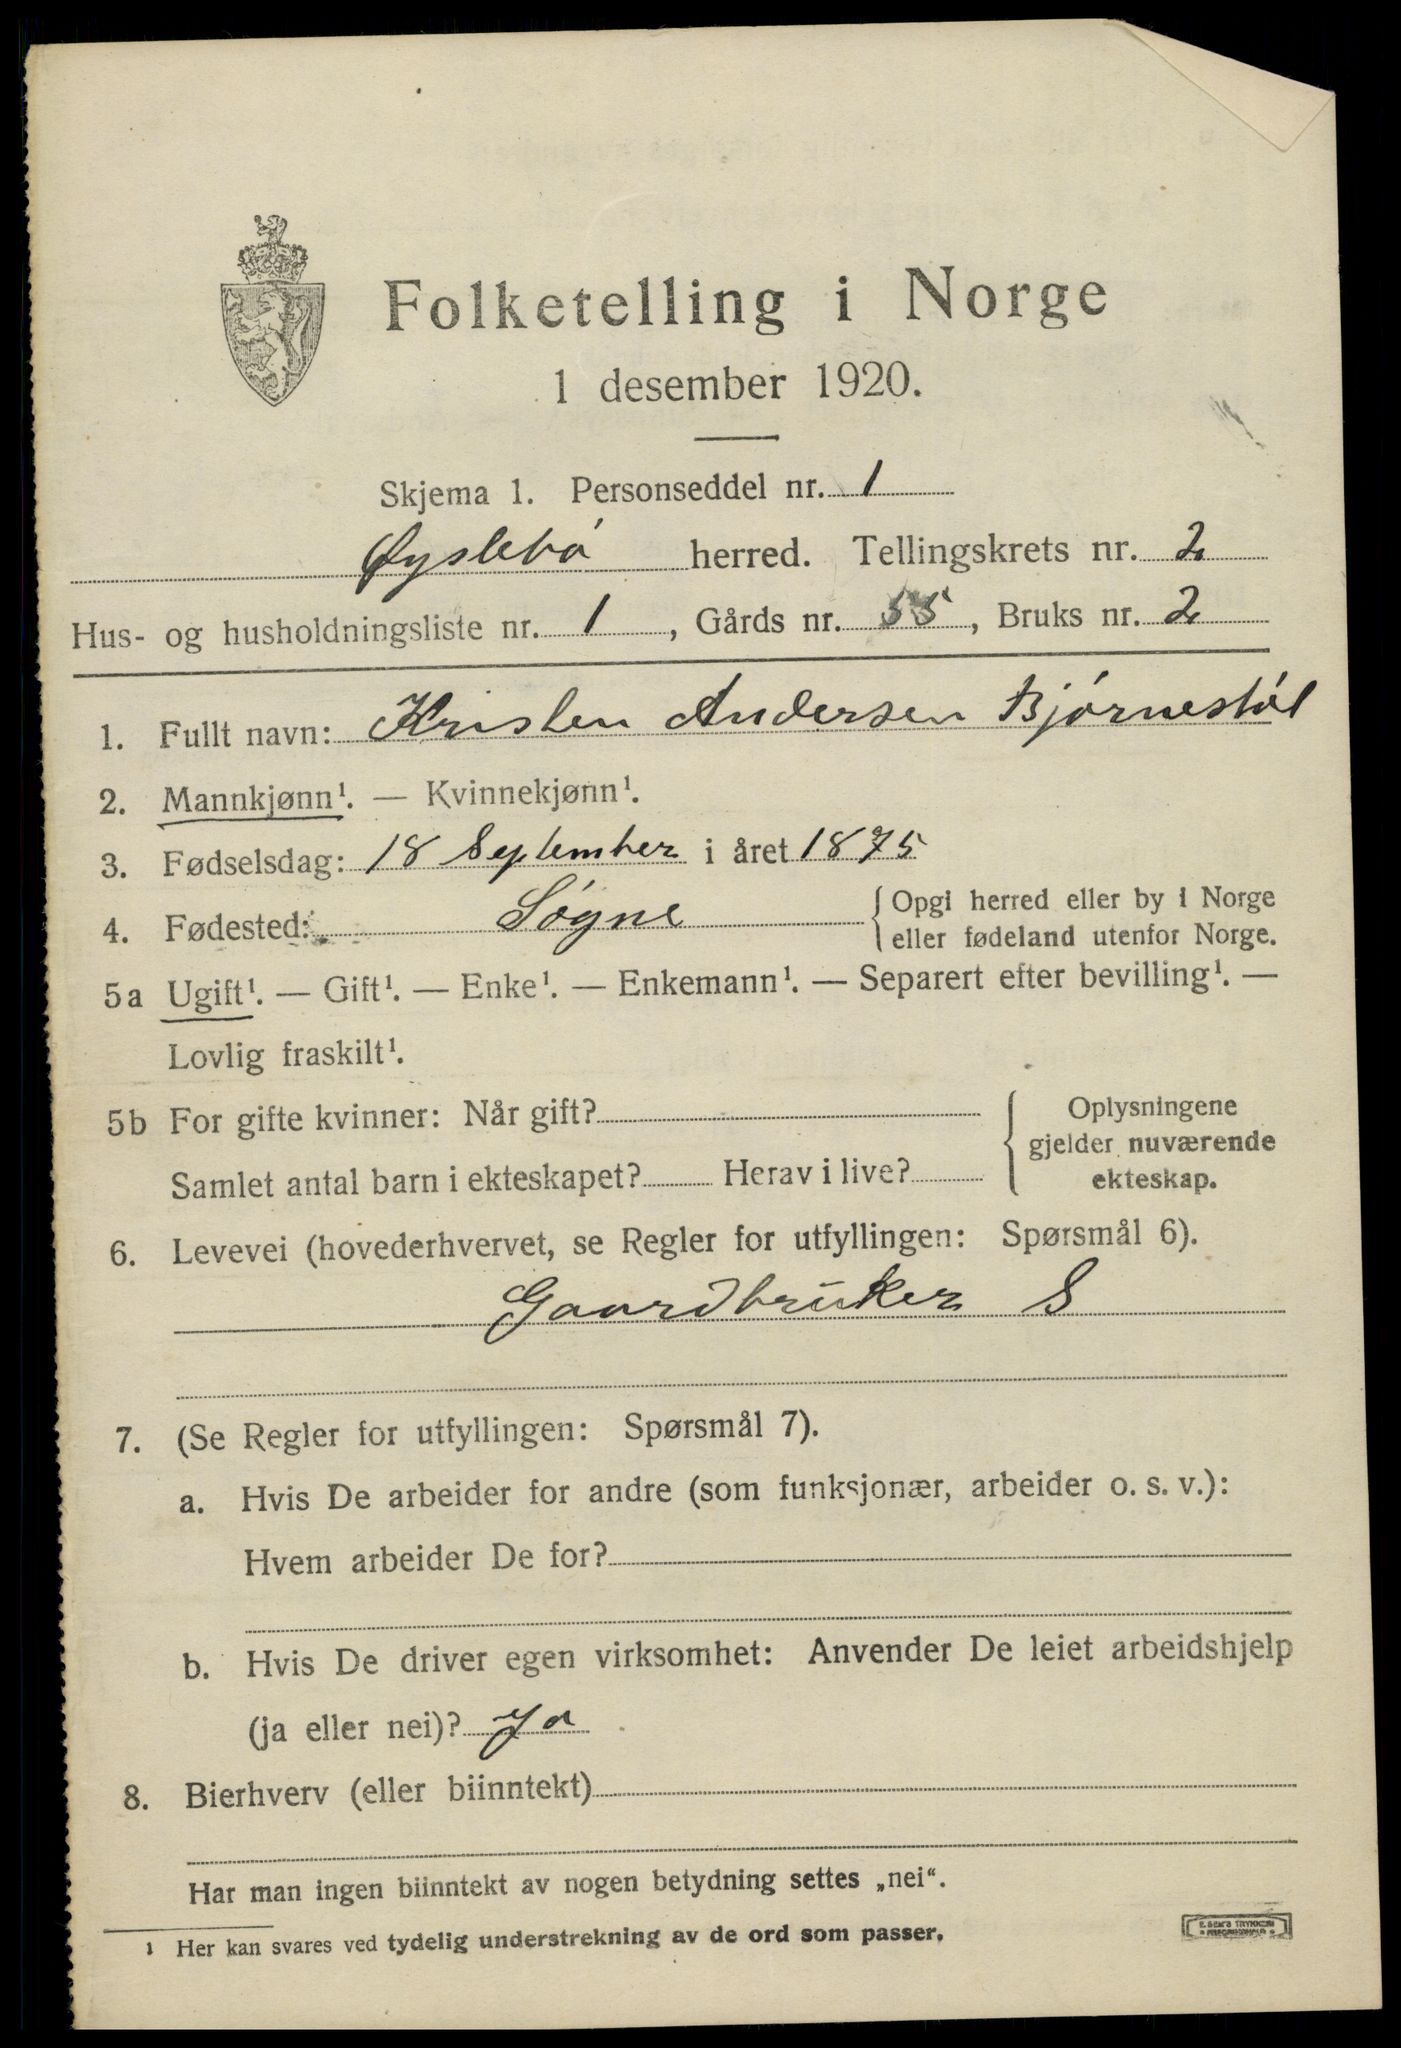 Folketelling i Norge
1 desember 1920.
Skjema 1. Personseddel nr. 1
Øyslebø herred. Tellingskrets nr. 2
Hus- og husholdningsliste nr. 1, Gårds nr. 55, Bruks nr. 2
1. Fullt navn: Kristen Andersen Bjørnestøl
2. Mannkjønn¹. — Kvinnekjønn¹.
3. Fødselsdag: 18 September i året 1875
4. Fødested: Søgne { Opgi herred eller by i Norge
eller fødeland utenfor Norge.
5a Ugift¹. — Gift¹. — Enke¹. — Enkemann¹. — Separert efter bevilling¹. —
Lovlig fraskilt¹.
5b For gifte kvinner: Når gift?
Samlet antal barn i ekteskapet? Herav i live?
{ Oplysningene
gjelder nuværende
ekteskap.
6. Levevei (hovederhvervet, se Regler for utfyllingen: Spørsmål 6).
Gaardbruker S
7. (Se Regler for utfyllingen: Spørsmål 7).
a. Hvis De arbeider for andre (som funksjonær, arbeider o. s. v.):
Hvem arbeider De for?
b. Hvis De driver egen virksomhet: Anvender De leiet arbeidshjelp
(ja eller nei)? Ja
8. Bierhverv (eller biinntekt)
Har man ingen biinntekt av nogen betydning settes „nei“.
¹ Her kan svares ved tydelig understrekning av de ord som passer.